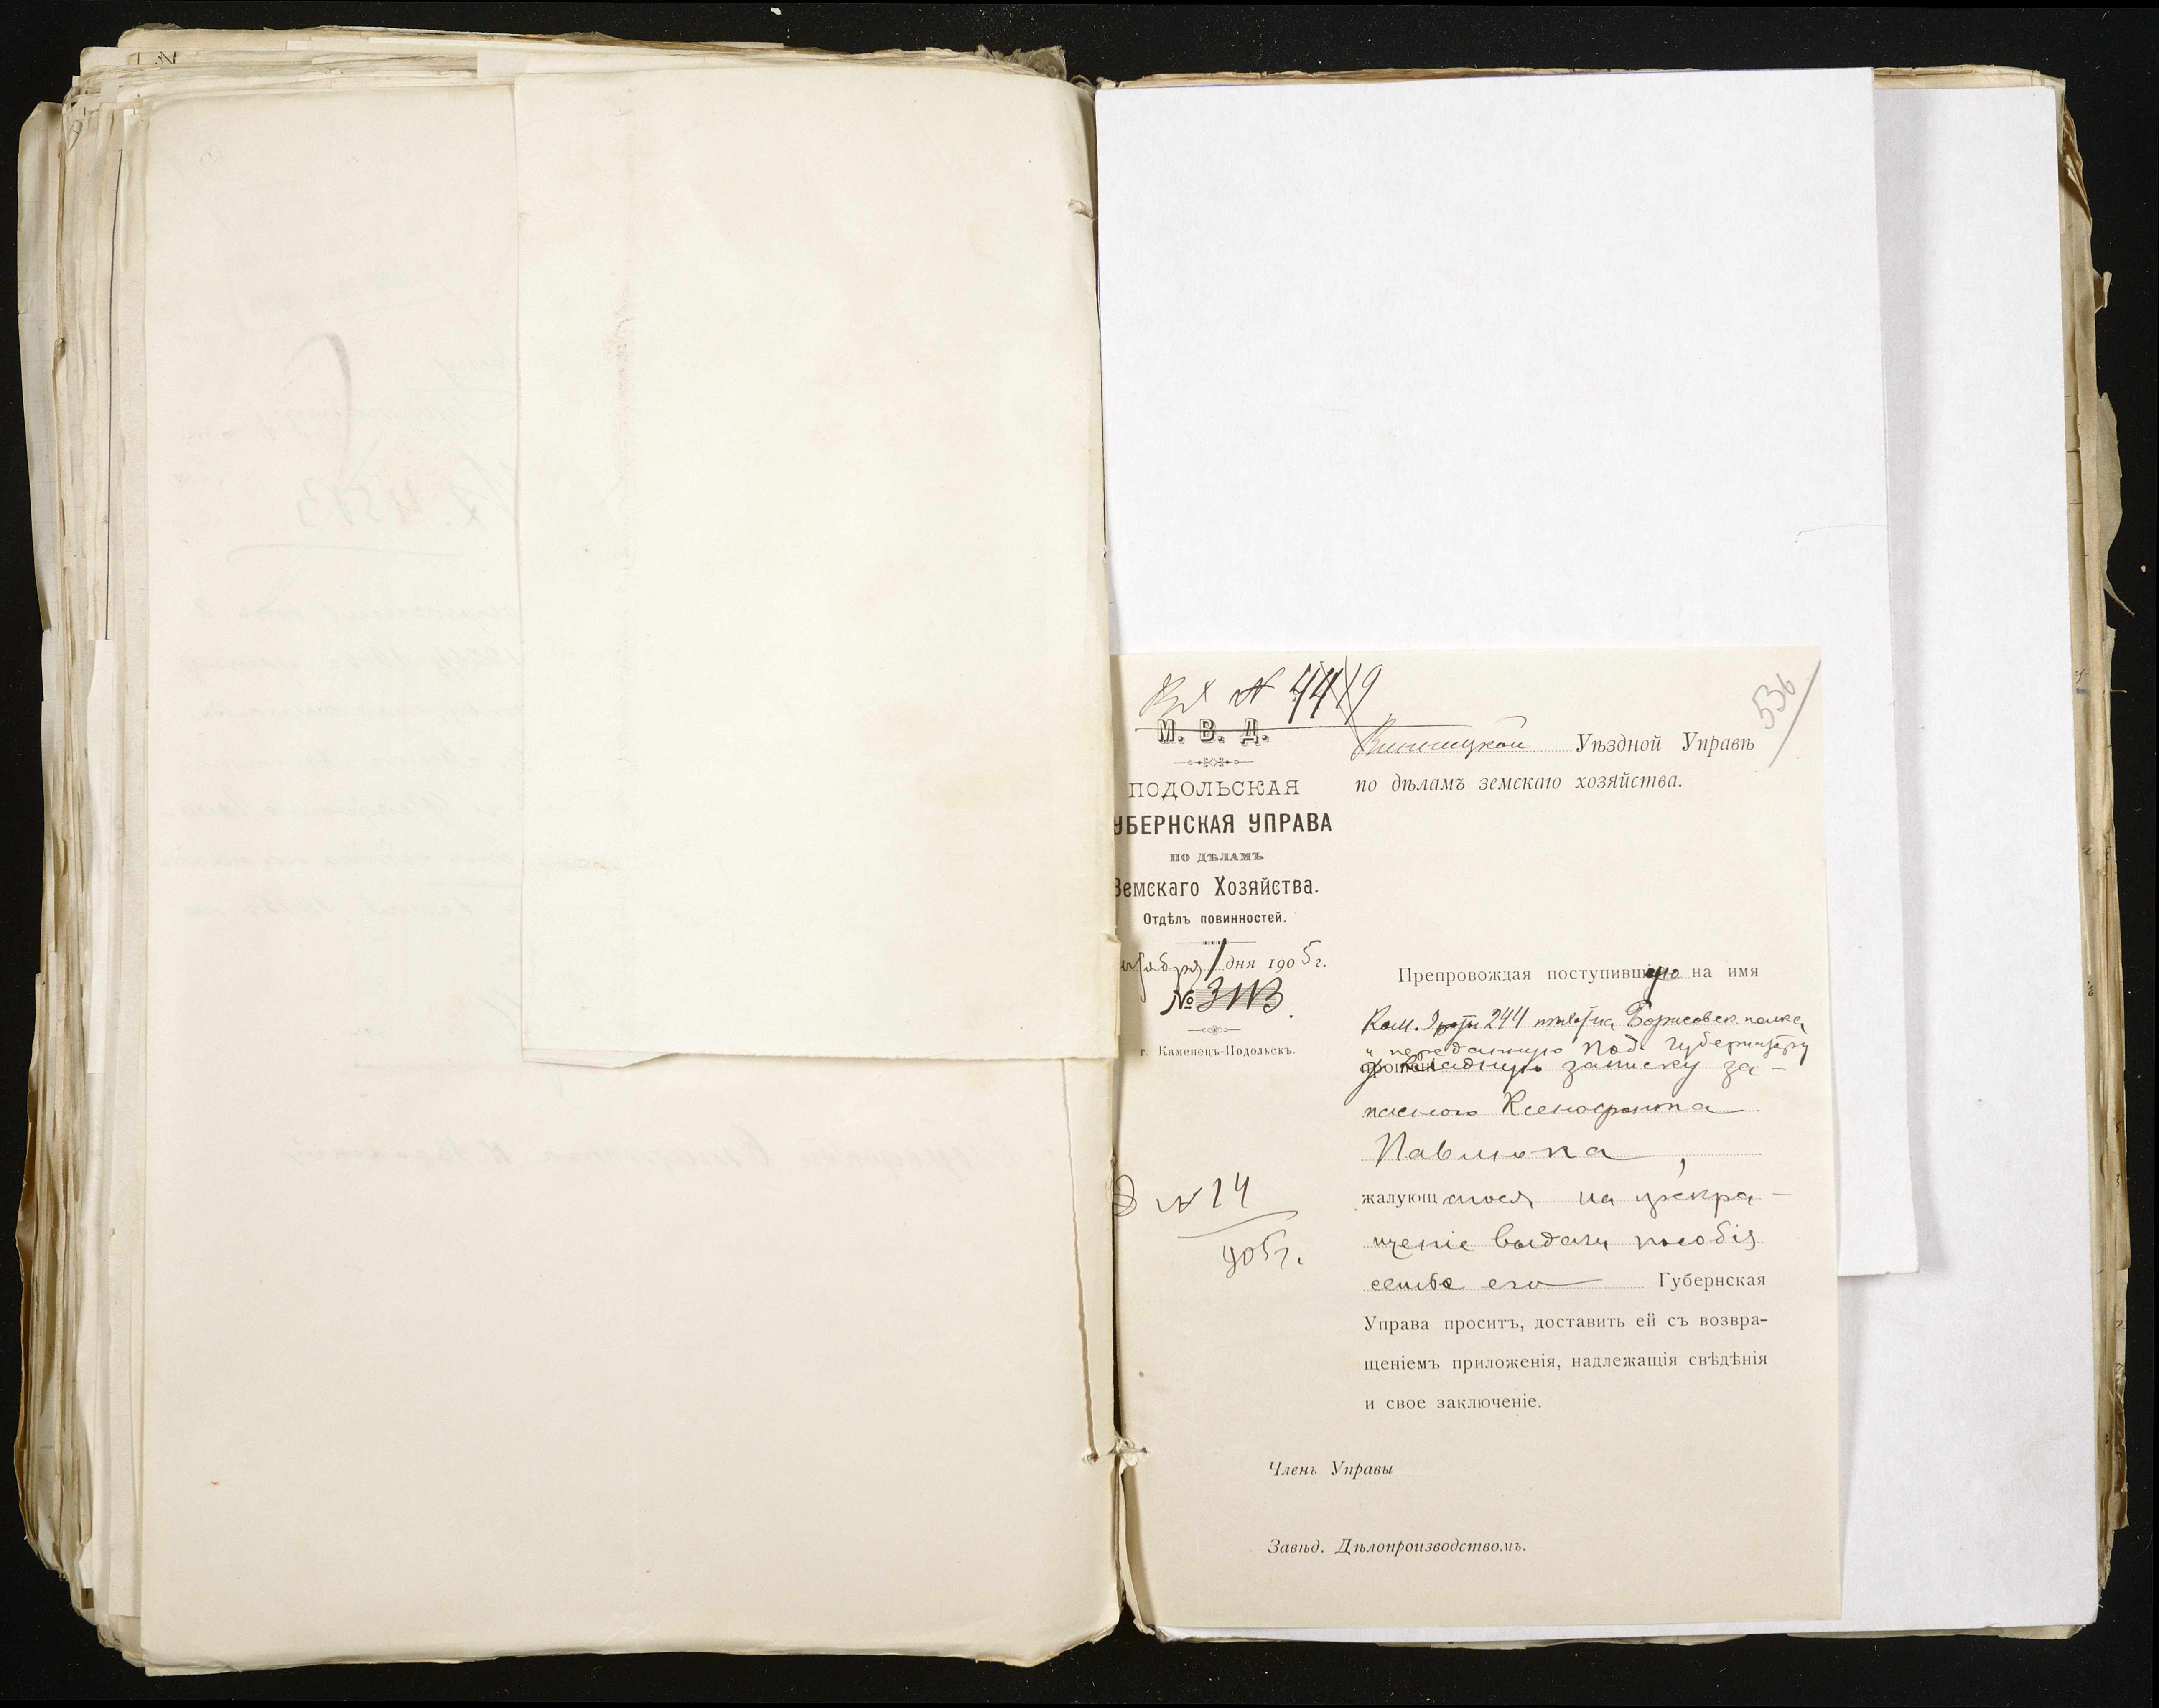 536
Вх № 4419
М. В. Д.
ПОДОЛЬСКАЯ
УБЕРНСКАЯ УПРАВА
ПО ДѢЛАМЪ
Земскаго Хозяйства.
Отдѣлъ повинностей.
1 дня 1905 г.
№ 3113.
г. Каменецъ-Подольскъ.
№ 24
905 г.
Винницкой Уѣздной Управѣ
по дѣламъ земскаго хозяйства.
Препровождая поступившую на имя
Ком. 9 роты 244 пѣхотна Борисовск. полка,
и переданную Под. Губернатору
докладную записку за-
паснаго Ксенофонта
Павлюка,
жалующагося на прекра-
щеніе выдачи пособія
семьѣ его Губернская
Управа проситъ, доставить ей съ возвра-
щеніемъ приложенія, надлежащія свѣдѣнія
и свое заключеніе.
Членъ Управы
Завѣд. Дѣлопроизводствомъ.